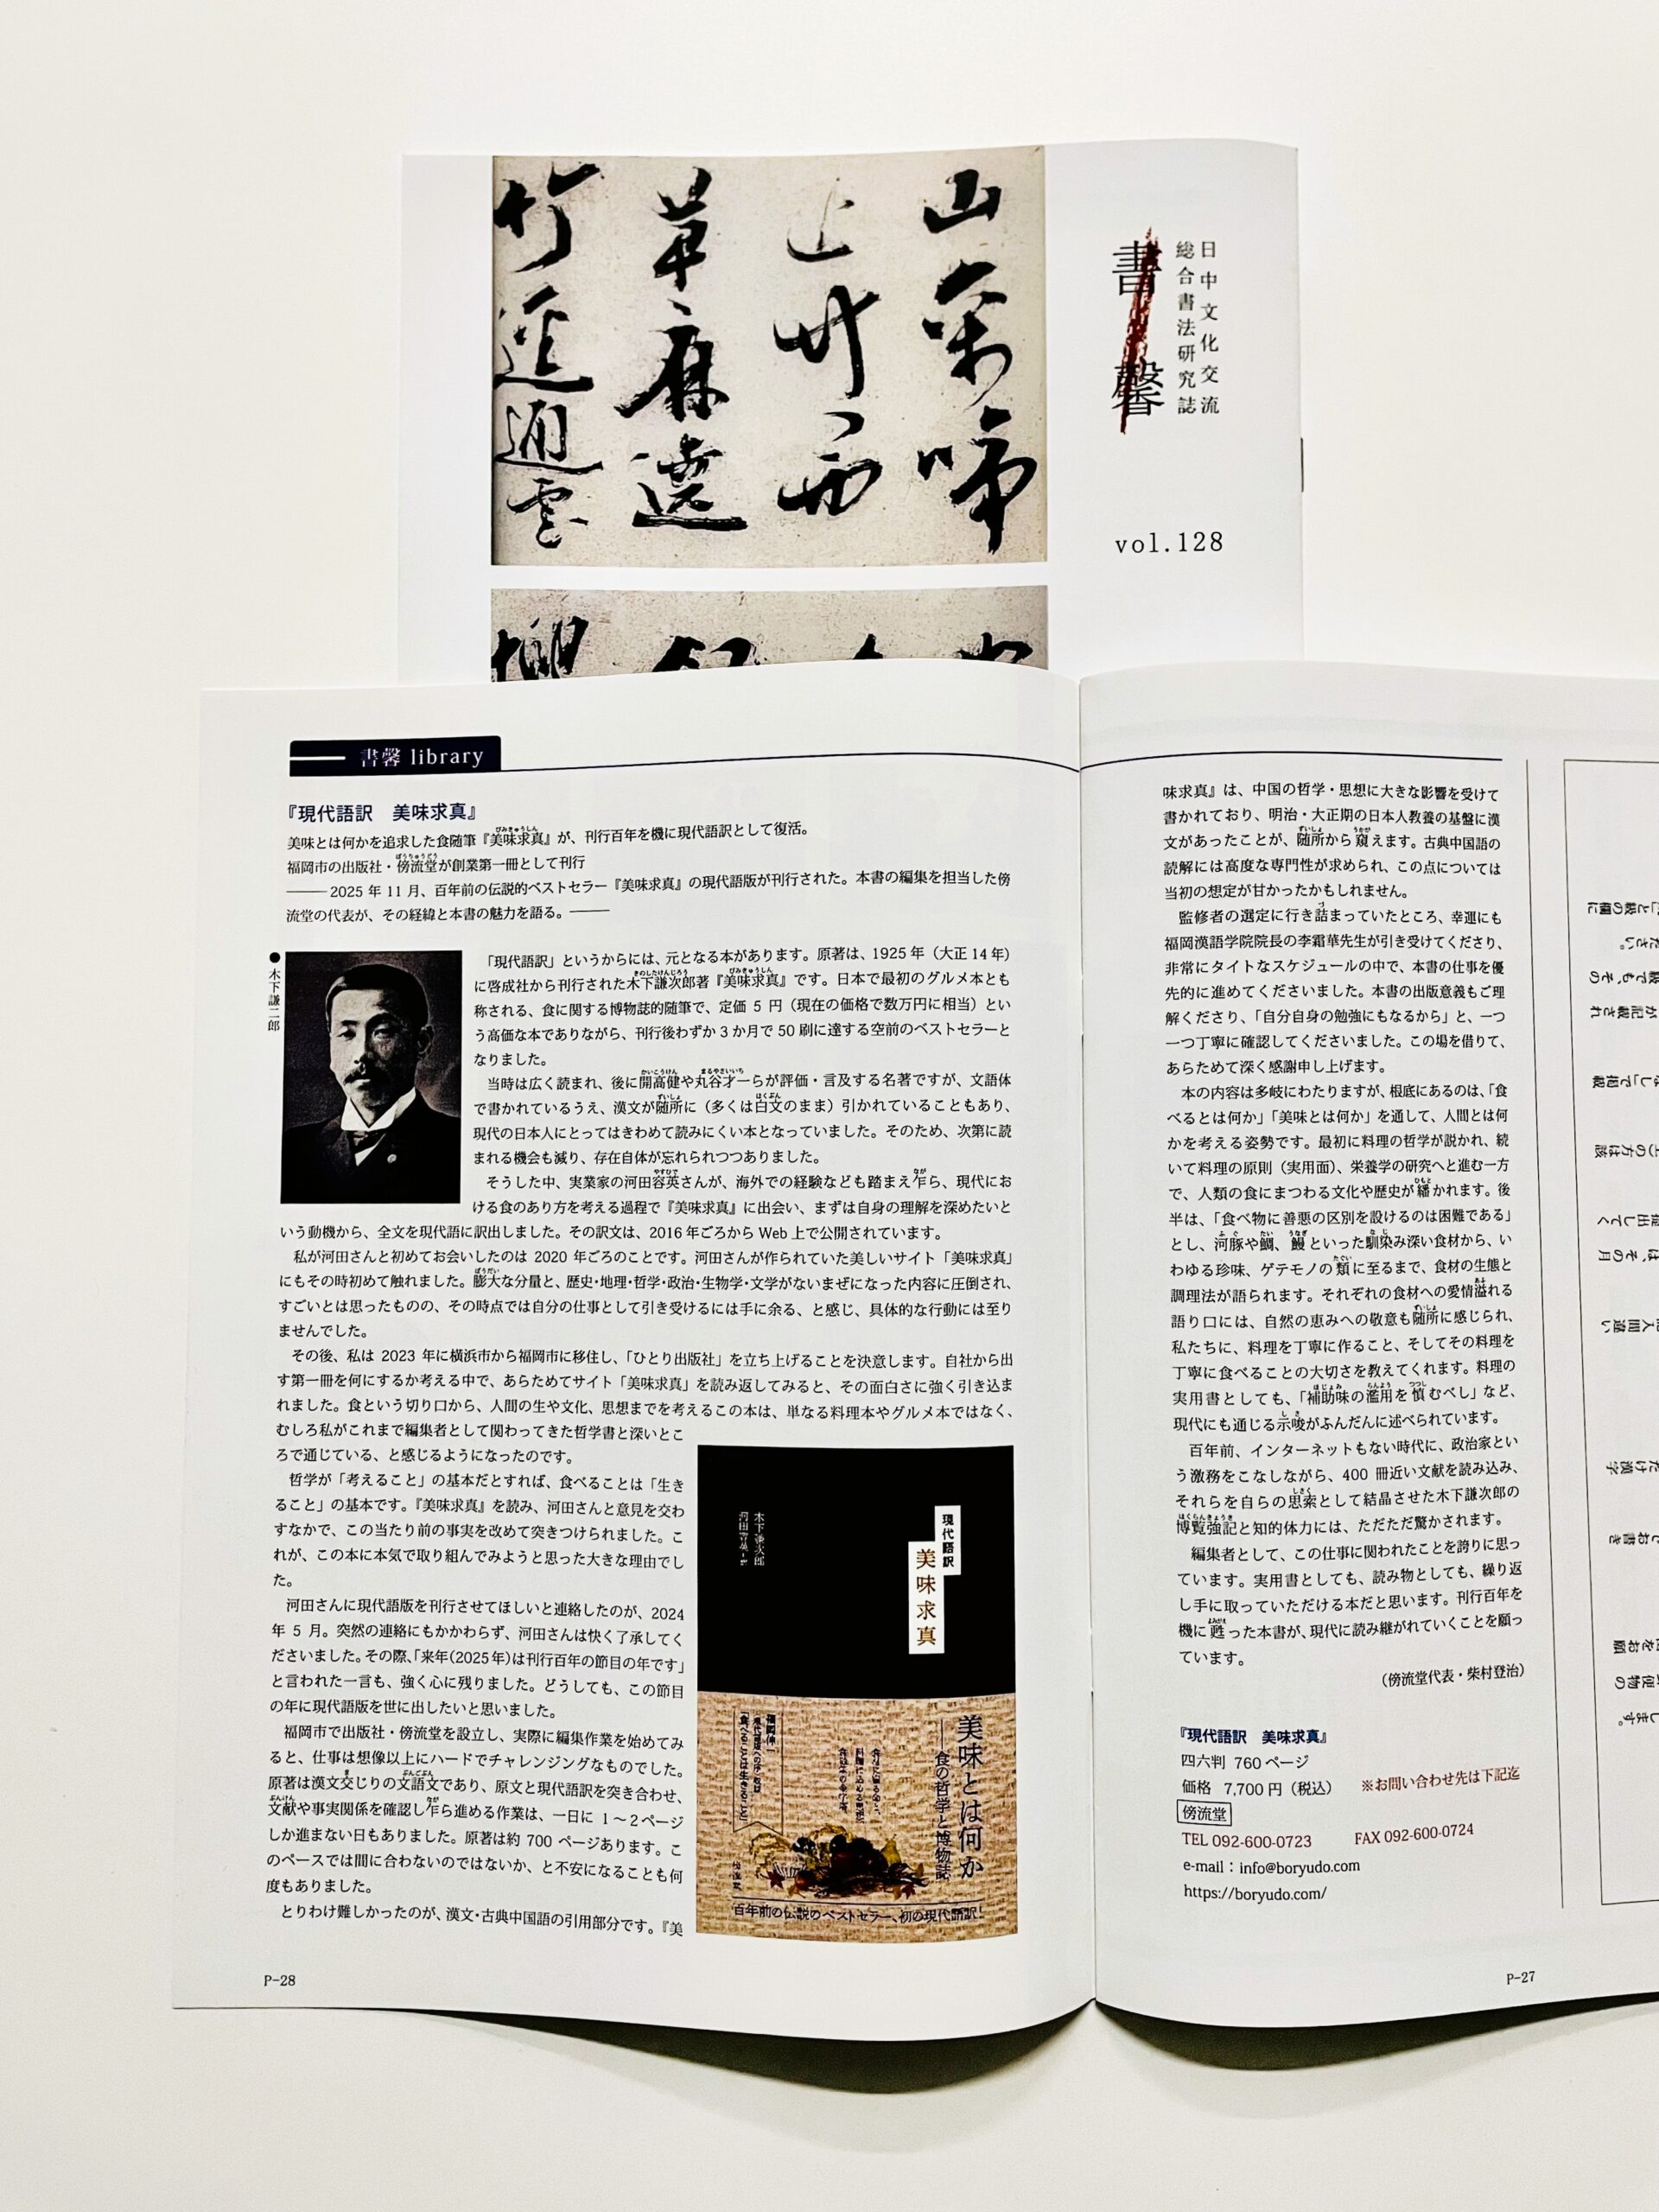 日中文化交流
総合書法研究誌
書馨
vol.128
山
啼
止
西
草
麻
遶
竹
通
雲
書馨 library
『現代語訳　美味求真』
美味とは何かを追求した食随筆『美味求真』が、刊行百年を機に現代語訳として復活。
福岡市の出版社・傍流堂が創業第一冊として刊行
――― 2025 年 11 月、百年前の伝説的ベストセラー『美味求真』の現代語版が刊行された。本書の編集を担当した傍
流堂の代表が、その経緯と本書の魅力を語る。―――
●木下謙二郎
「現代語訳」というからには、元となる本があります。原著は、1925 年（大正 14 年）
に啓成社から刊行された木下謙次郎著『美味求真』です。日本で最初のグルメ本とも
称される、食に関する博物誌的随筆で、定価 5 円（現在の価格で数万円に相当）とい
う高価な本でありながら、刊行後わずか 3 か月で 50 刷に達する空前のベストセラーと
なりました。
当時は広く読まれ、後に開高健や丸谷才一らが評価・言及する名著ですが、文語体
で書かれているうえ、漢文が随所に（多くは白文のまま）引かれていることもあり、
現代の日本人にとってはきわめて読みにくい本となっていました。そのため、次第に読
まれる機会も減り、存在自体が忘れられつつありました。
そうした中、実業家の河田容英さんが、海外での経験なども踏まえ乍ら、現代にお
ける食のあり方を考える過程で『美味求真』に出会い、まずは自身の理解を深めたいと
いう動機から、全文を現代語に訳出しました。その訳文は、2016 年ごろから Web 上で公開されています。
私が河田さんと初めてお会いしたのは 2020 年ごろのことです。河田さんが作られていた美しいサイト「美味求真」
にもその時初めて触れました。膨大な分量と、歴史・地理・哲学・政治・生物学・文学がないまぜになった内容に圧倒され、
すごいとは思ったものの、その時点では自分の仕事として引き受けるには手に余る、と感じ、具体的な行動には至り
ませんでした。
その後、私は 2023 年に横浜市から福岡市に移住し、「ひとり出版社」を立ち上げることを決意します。自社から出
す第一冊を何にするか考える中で、あらためてサイト「美味求真」を読み返してみると、その面白さに強く引き込ま
れました。食という切り口から、人間の生や文化、思想までを考えるこの本は、単なる料理本やグルメ本ではなく、
むしろ私がこれまで編集者として関わってきた哲学書と深いとこ
ろで通じている、と感じるようになったのです。
哲学が「考えること」の基本だとすれば、食べることは「生き
ること」の基本です。『美味求真』を読み、河田さんと意見を交わ
すなかで、この当たり前の事実を改めて突きつけられました。こ
れが、この本に本気で取り組んでみようと思った大きな理由でし
た。
河田さんに現代語版を刊行させてほしいと連絡したのが、2024
年 5 月。突然の連絡にもかかわらず、河田さんは快く了承してく
ださいました。その際、「来年(2025年)は刊行百年の節目の年です」
と言われた一言も、強く心に残りました。どうしても、この節目
の年に現代語版を世に出したいと思いました。
福岡市で出版社・傍流堂を設立し、実際に編集作業を始めてみ
ると、仕事は想像以上にハードでチャレンジングなものでした。
原著は漢文交じりの文語文であり、原文と現代語訳を突き合わせ、
文献や事実関係を確認し乍ら進める作業は、一日に 1～2 ページ
しか進まない日もありました。原著は約 700 ページあります。こ
のペースでは間に合わないのではないか、と不安になることも何
度もありました。
とりわけ難しかったのが、漢文・古典中国語の引用部分です。『美
現代語訳
美味求真
木下謙次郎
河田容英・訳
美味とは何か
――食の哲学と博物誌
福岡伸一
「食べることは生きること」
百年前の伝説のベストセラー、初の現代語訳！
P-28
味求真』は、中国の哲学・思想に大きな影響を受けて
書かれており、明治・大正期の日本人教養の基盤に漢
文があったことが、随所から窺えます。古典中国語の
読解には高度な専門性が求められ、この点については
当初の想定が甘かったかもしれません。
監修者の選定に行き詰まっていたところ、幸運にも
福岡漢語学院院長の李霜華先生が引き受けてくださり、
非常にタイトなスケジュールの中で、本書の仕事を優
先的に進めてくださいました。本書の出版意義もご理
解くださり、「自分自身の勉強にもなるから」と、一つ
一つ丁寧に確認してくださいました。この場を借りて、
あらためて深く感謝申し上げます。
本の内容は多岐にわたりますが、根底にあるのは、「食
べるとは何か」「美味とは何か」を通して、人間とは何
かを考える姿勢です。最初に料理の哲学が説かれ、続
いて料理の原則（実用面）、栄養学の研究へと進む一方
で、人類の食にまつわる文化や歴史が繙かれます。後
半は、「食べ物に善悪の区別を設けるのは困難である」
とし、河豚や鯛、鰻といった馴染み深い食材から、い
わゆる珍味、ゲテモノの類に至るまで、食材の生態と
調理法が語られます。それぞれの食材への愛情溢れる
語り口には、自然の恵みへの敬意も随所に感じられ、
私たちに、料理を丁寧に作ること、そしてその料理を
丁寧に食べることの大切さを教えてくれます。料理の
実用書としても、「補助味の濫用を慎むべし」など、
現代にも通じる示唆がふんだんに述べられています。
百年前、インターネットもない時代に、政治家とい
う激務をこなしながら、400 冊近い文献を読み込み、
それらを自らの思索として結晶させた木下謙次郎の
博覧強記と知的体力には、ただただ驚かされます。
編集者として、この仕事に関われたことを誇りに思っ
ています。実用書としても、読み物としても、繰り返
し手に取っていただける本だと思います。刊行百年を
機に甦った本書が、現代に読み継がれていくことを願っ
ています。
（傍流堂代表・柴村登治）
『現代語訳　美味求真』
四六判 760 ページ
価格 7,700 円（税込）
※お問い合わせ先は下記迄
傍流堂
TEL 092-600-0723 FAX 092-600-0724
e-mail：info@boryudo.com
https://boryudo.com/
P-27